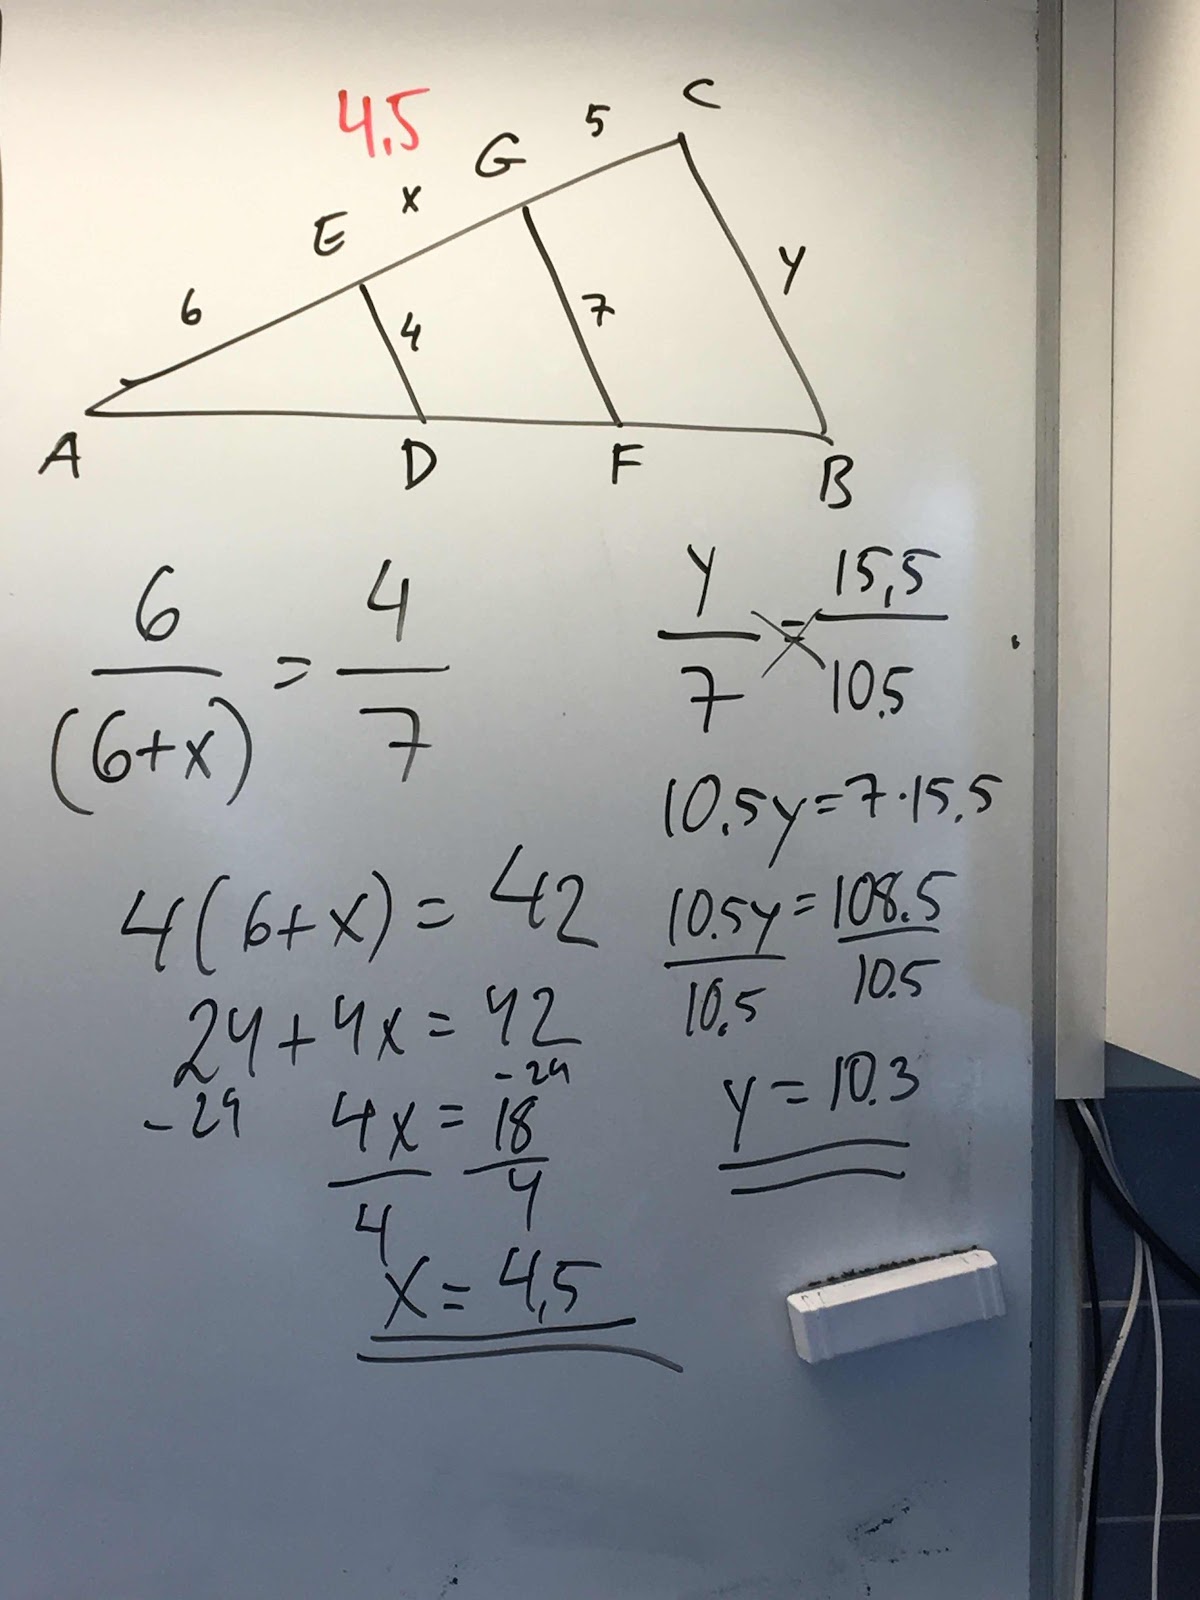 4.5
C
5
G
x
E
y
6
4
7
A
D
F
B
6/(6+x) = 4/7
4(6+x) = 42
24+4x = 42
-24 -24
4x/4 = 18/4
x = 4,5
y/7 = 15,5/10.5
10.5y=7·15.5
10.5y/10.5 = 108.5/10.5
y = 10.3